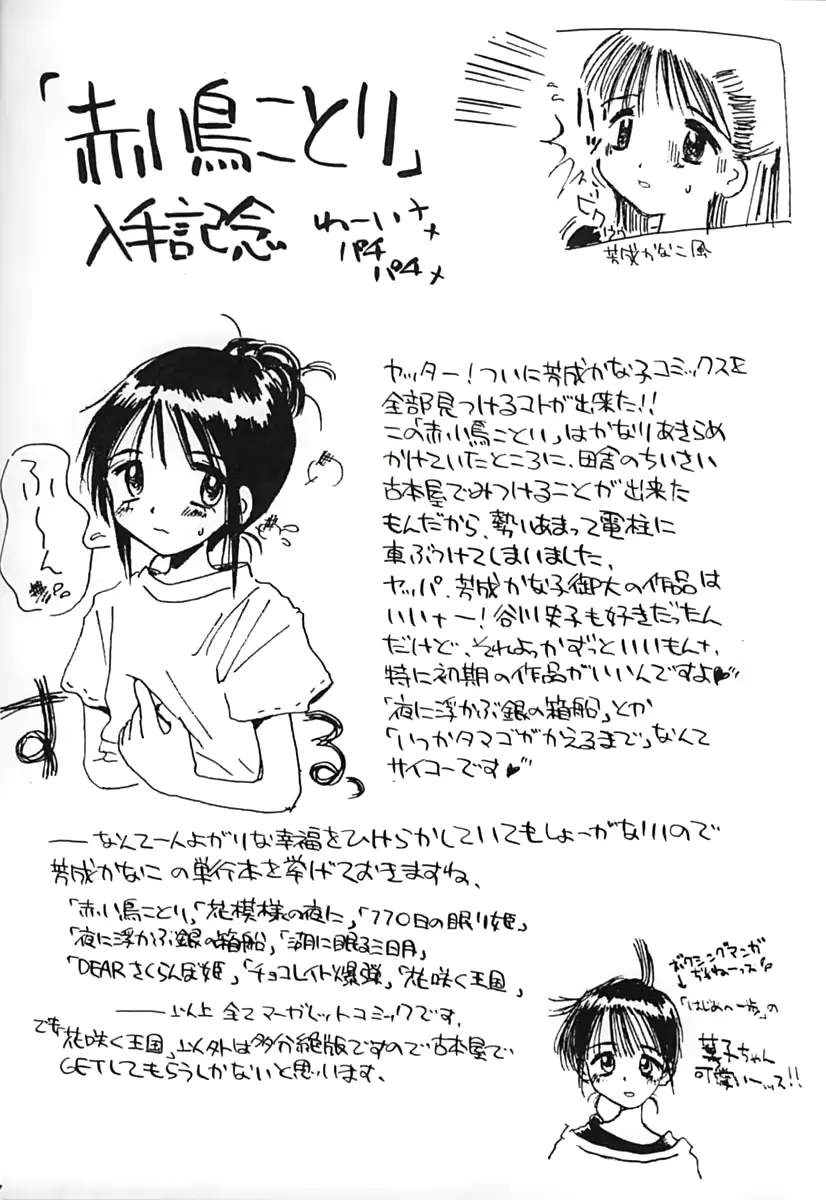 「赤い鳥ことり」
入手記念
わーい
パチ
パチ
芳成かなこ風
ヤッター!ついに芳成かな子コミックスを
全部見つけるコトが出来た!!
この「赤い鳥ことり」はかなりあきらめ
かけていたところに、田舎のちいさい
古本屋でみつけることが出来た
もんだから、勢いあまって電柱に
車ぶつけてしまいました、
ヤッパ、芳成かな子御大の作品は
いいナー!谷川史子も好きだったん
だけど、それよっかずっといいもんナ、
特に初期の作品がいいんですよ♥
「夜に浮かぶ銀の箱船」とか
「いつかタマゴがかえるまで」なんて
サイコーです♥
ふーん
する、
――なんて一人よがりな幸福をひけらかしていてもしょーがないので
芳成かなこの単行本を挙げておきますね、
「赤い鳥ことり」「花模様の夜に」「770日の眠り姫」
「夜に浮かぶ銀の箱船」「湖に眠る三日月」
「DEARさくらんぼ姫」「チョコレイト爆弾」「花咲く王国」
――以上全てマーガレットコミックです、
「花咲く王国」以外は多分絶版ですので古本屋で
GETしてもらうしかないと思います、
ボクシングマンガ
「はじめの一歩」の
菓子ちゃん
可愛いーッス!!